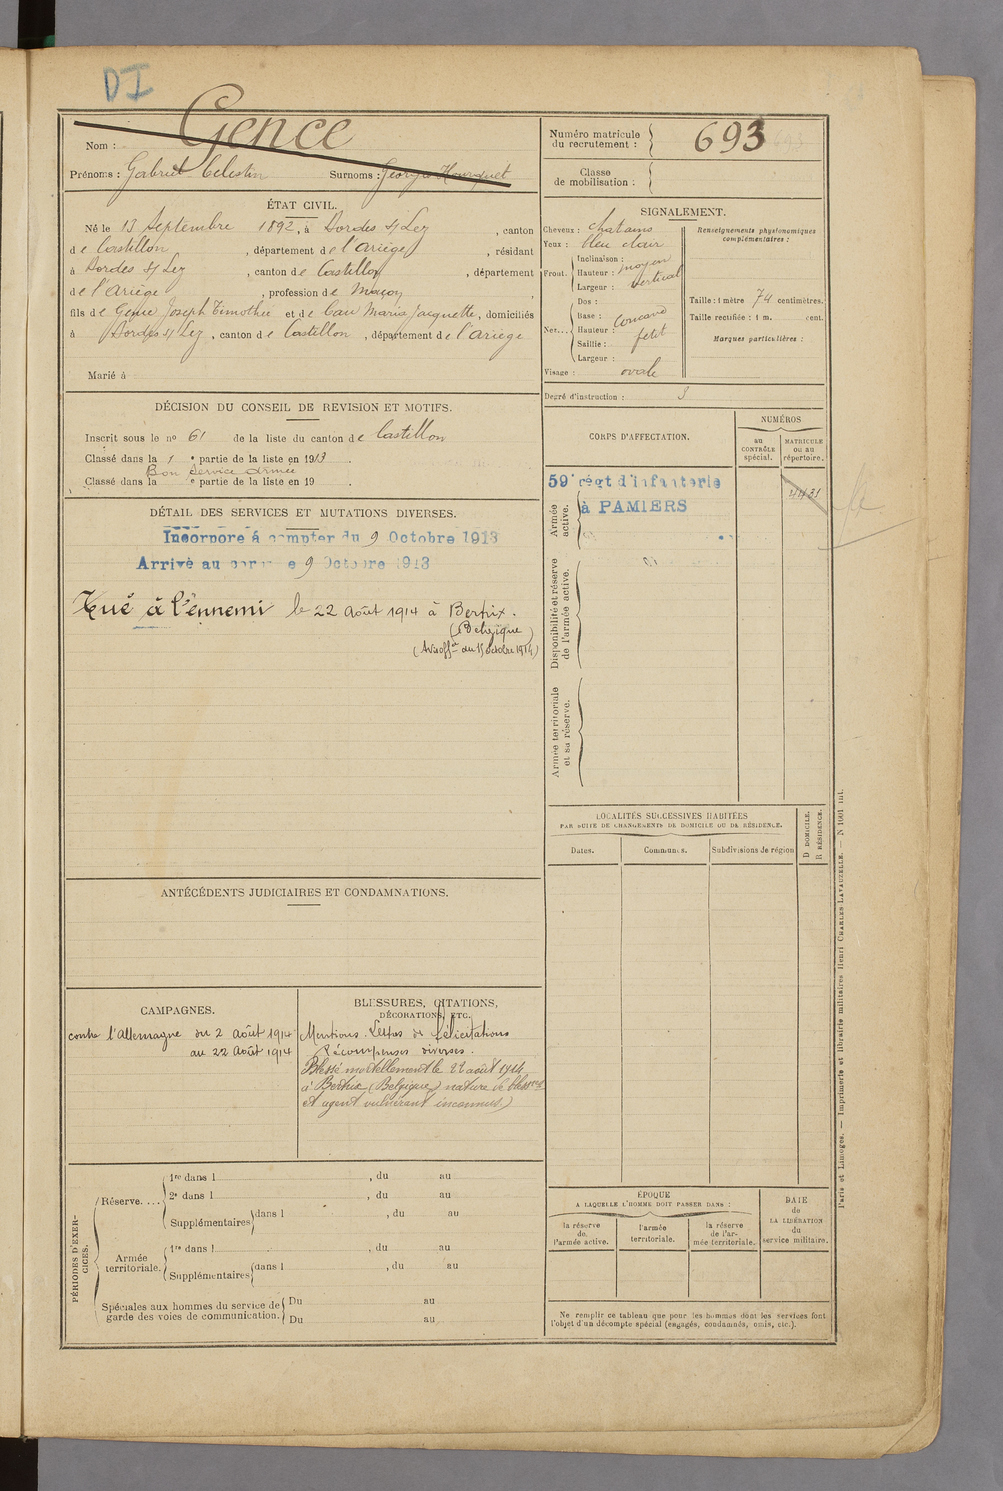 DI
Gence
Nom :
Prénoms : Gabriel Celestin Surnoms : Georges
ÉTAT CIVIL.
Né le 13 Septembre 1892, à Bordes s/ Lez, canton
de Castillon, département de l'Ariège, résidant
à Bordes s/ Lez, canton de Castillon, département
de l'Ariège, profession de Maçon,
fils de Gence Joseph Timothée et de Cau Marie Jacquette, domiciliés
à Bordes s/ Lez, canton de Castillon, département de l'Ariège
Marié à
DÉCISION DU CONSEIL DE REVISION ET MOTIFS.
Inscrit sous le no 61 de la liste du canton de Castillon
Classé dans la 1 e partie de la liste en 1913.
Bon Service Armée
Classé dans la e partie de la liste en 19 .
DÉTAIL DES SERVICES ET MUTATIONS DIVERSES.
Incorporé à compter du 9 Octobre 1913
Arrivé au corps le 9 Octobre 1913
Tué à l'ennemi le 22 Août 1914 à Bertrix.
(Belgique)
(Avis offel du 15 octobre 1914)
ANTÉCÉDENTS JUDICIAIRES ET CONDAMNATIONS.
CAMPAGNES.
contre l'Allemagne du 2 Août 1914
au 22 Août 1914
BLESSURES, CITATIONS,
DÉCORATIONS, ETC.
Mentions. Lettres de félicitations
Récompenses diverses.
Blessé mortellement le 22 août 1914
à Bertrix (Belgique) nature de blessure
et agent vulnérant inconnus)
PÉRIODES D'EXER-
CICES.
Réserve....
1re dans l , du au
2e dans l , du au
Supplémentaires dans l , du au
Armée
territoriale.
1re dans l , du au
Supplémentaires dans l , du au
Spéciales aux hommes du service de
garde des voies de communication.
Du au
Du au
Numéro matricule
du recrutement :
693
Classe
de mobilisation :
SIGNALEMENT.
Cheveux : chatains
Yeux : bleu clair
Front.
Inclinaison :
Hauteur : moyen
Largeur : vertical
Nez...
Dos :
Base : concave
Hauteur :
Saillie : petit
Largeur :
Visage : ovale
Renseignements physionomiques
complémentaires :
Taille : 1 mètre 74 centimètres.
Taille rectifiée : 1 m. cent.
Marques particulières :
Degré d'instruction : 3
CORPS D'AFFECTATION.
NUMÉROS
au
CONTRÔLE
spécial.
MATRICULE
ou au
répertoire.
Armée
active.
59e régt d'infanterie
à PAMIERS
4431
Disponibilité et réserve
de l'armée active.
Armée territoriale
et sa réserve.
LOCALITÉS SUCCESSIVES HABITÉES
PAR SUITE DE CHANGEMENTS DE DOMICILE OU DE RÉSIDENCE.
Dates.
Communes.
Subdivisions de région
D DOMICILE.
R RÉSIDENCE.
ÉPOQUE
A LAQUELLE L'HOMME DOIT PASSER DANS :
la réserve
de
l'armée active.
l'armée
territoriale.
la réserve
de l'ar-
mée territoriale.
DATE
de
LA LIBÉRATION
du
service militaire.
Ne remplir ce tableau que pour les hommes dont les services font
l'objet d'un décompte spécial (engagés, condamnés, omis, etc.).
Paris et Limoges. — Imprimerie et librairie militaires Henri CHARLES-LAVAUZELLE. — N 1601 int.